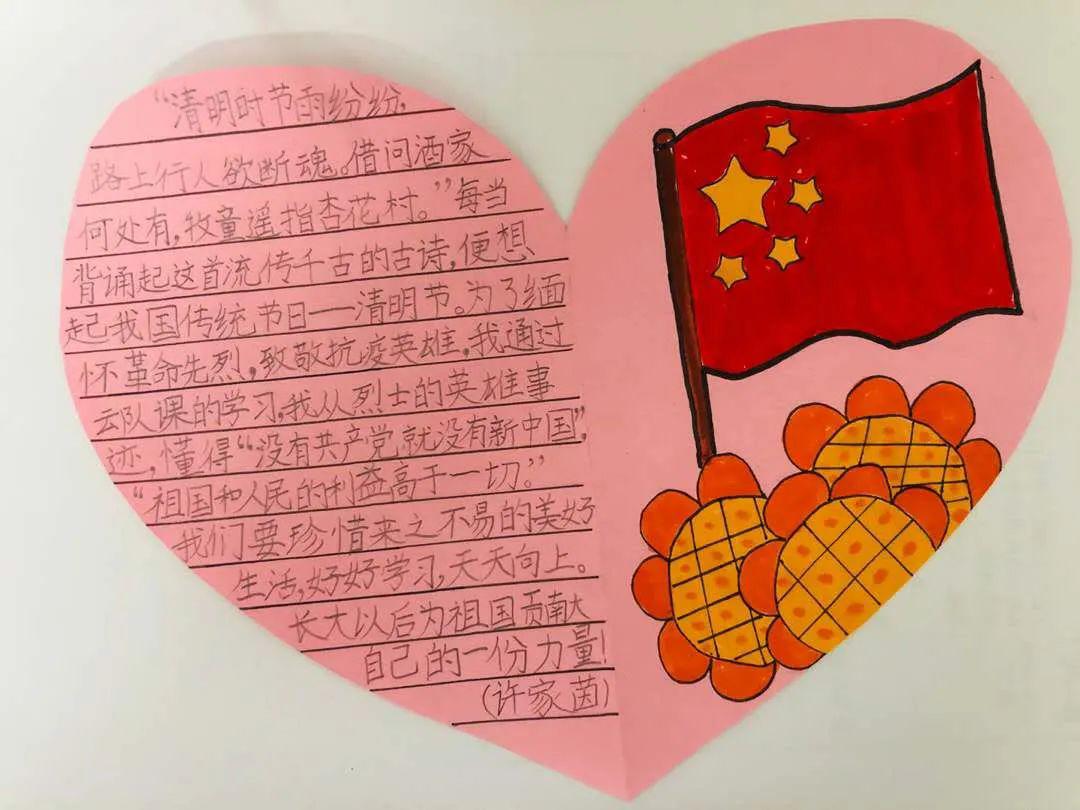 “清明时节雨纷纷,
路上行人欲断魂。借问酒家
何处有,牧童遥指杏花村。”每当
背诵起这首流传千古的古诗,便想
起我国传统节日——清明节。为了缅
怀革命先烈,致敬抗疫英雄,我通过
云队课的学习,我从烈士的英雄事
迹,懂得“没有共产党,就没有新中国”,
“祖国和人民的利益高于一切。”
我们要珍惜来之不易的美好
生活,好好学习,天天向上。
长大以后为祖国贡献
自己的一份力量!
(许家茵)